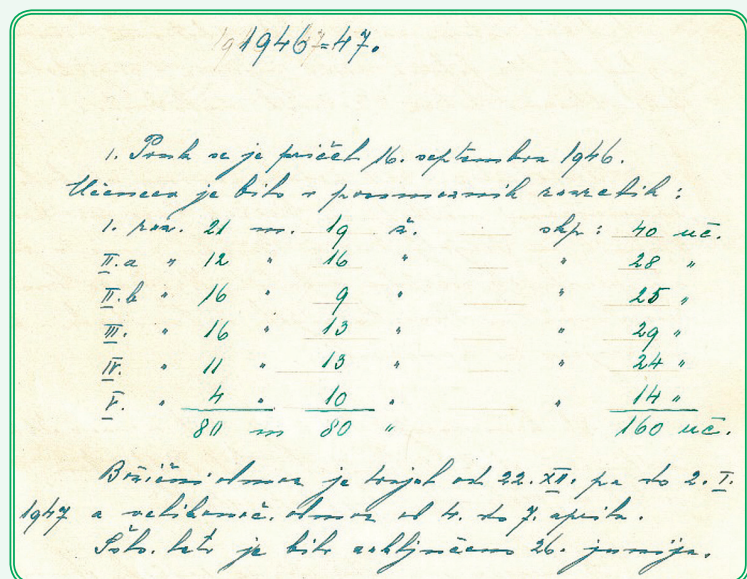 1946=47.
1. Pouk se je pričel 16. septembra 1946.
Učencev je bilo v posameznih razredih:
1. raz. 21 m. 19 ž. skp: 40 uč.
II.a " 12 " 16 " " 28 "
II.b " 16 " 9 " " 25 "
III. " 16 " 13 " " 29 "
IV. " 11 " 13 " " 24 "
V. " 4 " 10 " " 14 "
80 m 80 " 160 uč.
Božični odmor je trajal od 22. XII. pa do 2. I.
1947 a velikonoč. odmor od 4. do 7. aprila.
Šols. leto je bilo zaključeno 26. junija.